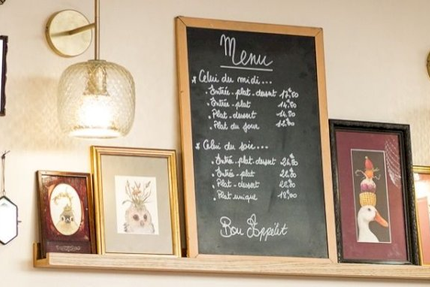 Menu
Celui du midi...
Entrée-plat-dessert 17,50
Entrée-plat 14,50
Plat-dessert 14,50
Plat du jour
Celui du soir...
Entrée-plat-dessert
Entrée-plat
Plat-dessert
Plat unique 18,00
Bon Appétit